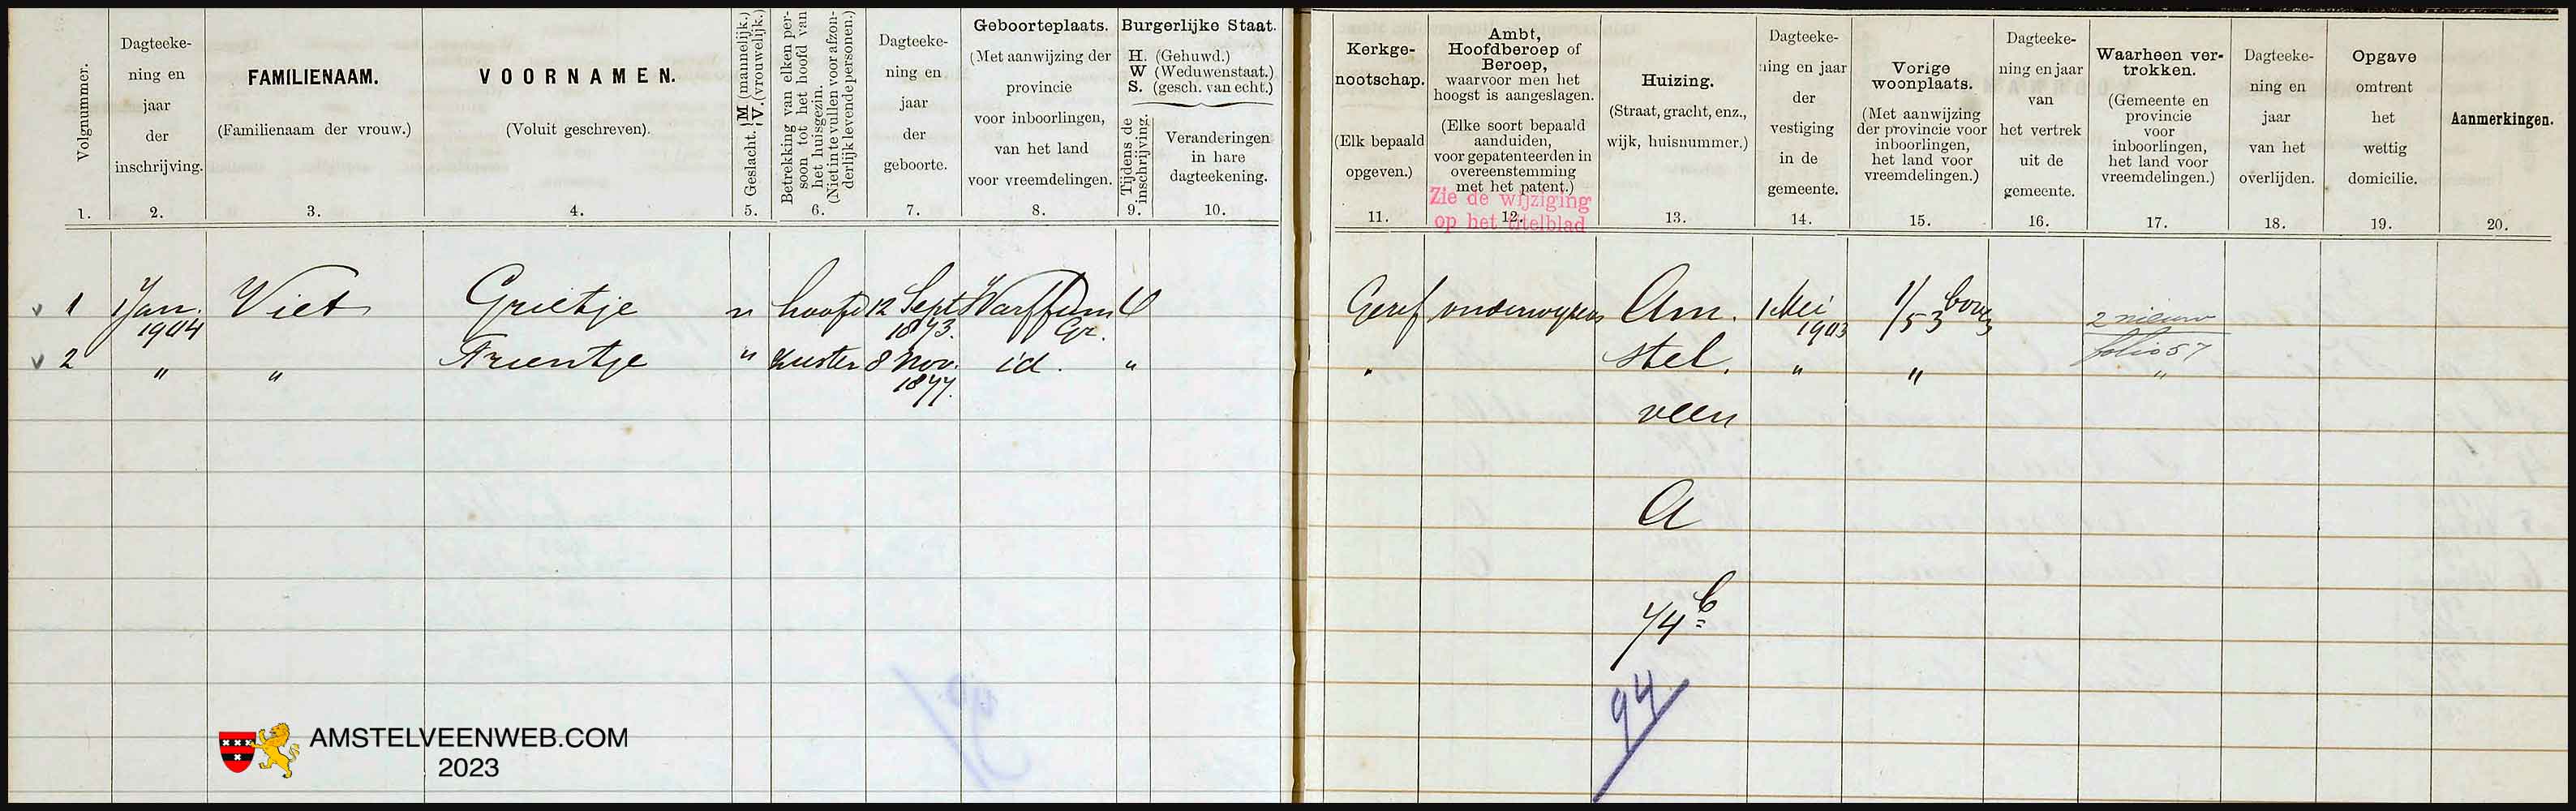 Volgnummer.
1.
Dagteeke-
ning en
jaar
der
inschrijving.
2.
FAMILIENAAM.
(Familienaam der vrouw.)
3.
VOORNAMEN.
(Voluit geschreven).
4.
Geslacht. M (mannelijk.)
V. (vrouwelijk.)
5.
Betrekking van elken per-
soon tot het hoofd van
het huisgezin.
(Niet in te vullen voor afzon-
derlijk levende personen.)
6.
Dagteeke-
ning en
jaar
der
geboorte.
7.
Geboorteplaats.
(Met aanwijzing der
provincie
voor inboorlingen,
van het land
voor vreemdelingen.
8.
Burgerlijke Staat.
H. (Gehuwd.)
W (Weduwenstaat.)
S. (gesch. van echt.)
Tijdens de
inschrijving.
9.
Veranderingen
in hare
dagteekening.
10.
Kerkge-
nootschap.
(Elk bepaald
opgeven.)
11.
Ambt,
Hoofdberoep of
Beroep,
waarvoor men het
hoogst is aangeslagen.
(Elke soort bepaald
aanduiden,
voor gepatenteerden in
overeenstemming
met het patent.)
Zie de wijziging
12.
op het titelblad
Huizing.
(Straat, gracht, enz.,
wijk, huisnummer.)
13.
Dagteeke-
ning en jaar
der
vestiging
in de
gemeente.
14.
Vorige
woonplaats.
(Met aanwijzing
der provincie voor
inboorlingen,
het land voor
vreemdelingen.)
15.
Dagteeke-
ning en jaar
van
het vertrek
uit de
gemeente.
16.
Waarheen ver-
trokken.
(Gemeente en
provincie
voor
inboorlingen,
het land voor
vreemdelingen.)
17.
Dagteeke-
ning en
jaar
van het
overlijden.
18.
Opgave
omtrent
het
wettig
domicilie.
19.
Aanmerkingen.
20.
1 Jan. Viet Grietje v hoofd 12 Sept Warffum Geref onderwijzers Am. 1 Mei 1/53
1904 1873. Gr. 1903 2 nieuw
folio 57
2 " " Trientje " zuster 8 Nov. id. " " stel. " " "
1877.
veen
A
74 b
94
AMSTELVEENWEB.COM
2023